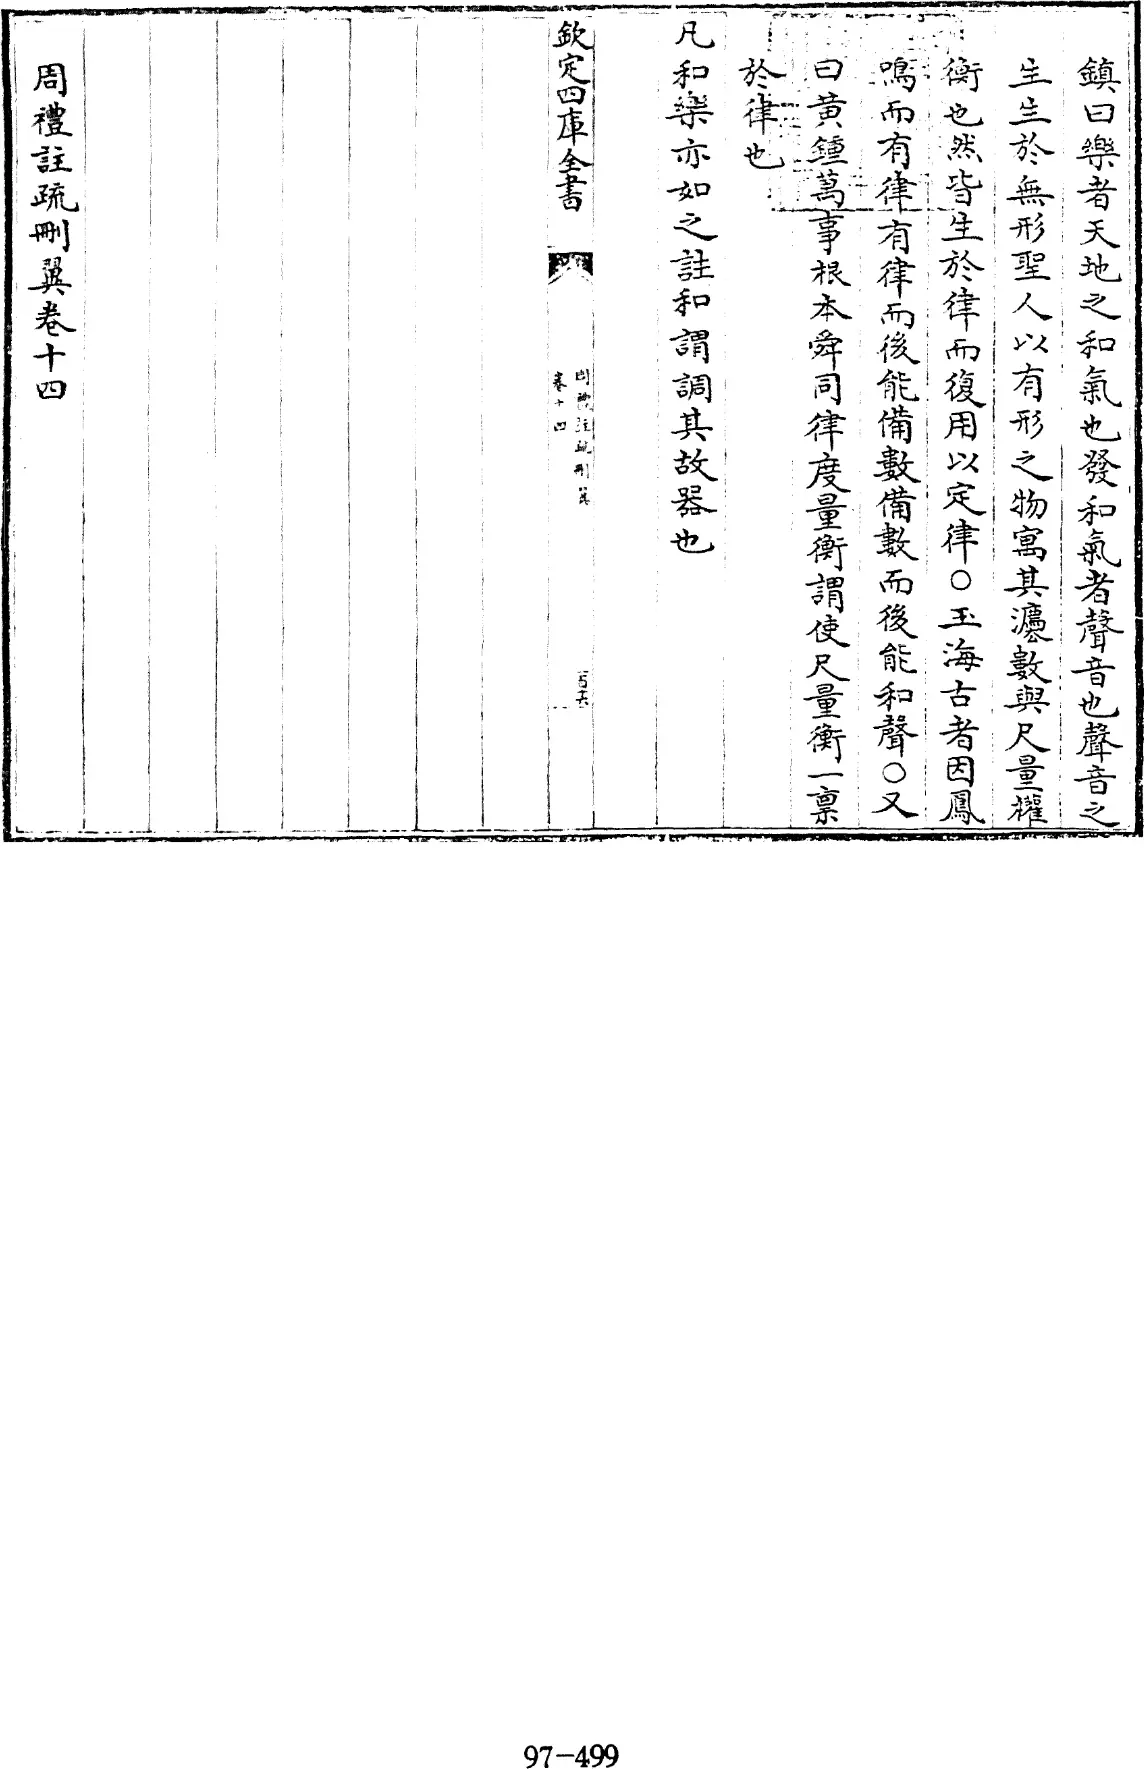 鎮曰樂者天地之和氣也發和氣者聲音也聲音之
生生於無形聖人以有形之物寓其灋數與尺量權
衡也然皆生於律而復用以定律○玉海古者因鳳
鳴而有律有律而後能備數備數而後能和聲○又
曰黃鍾萬事根本舜同律度量衡謂使尺量衡一禀
於律也
凡和樂亦如之註和謂調其故器也
欽定四庫全書
周禮註疏刪翼
卷十四
周禮註疏刪翼卷十四
97-499